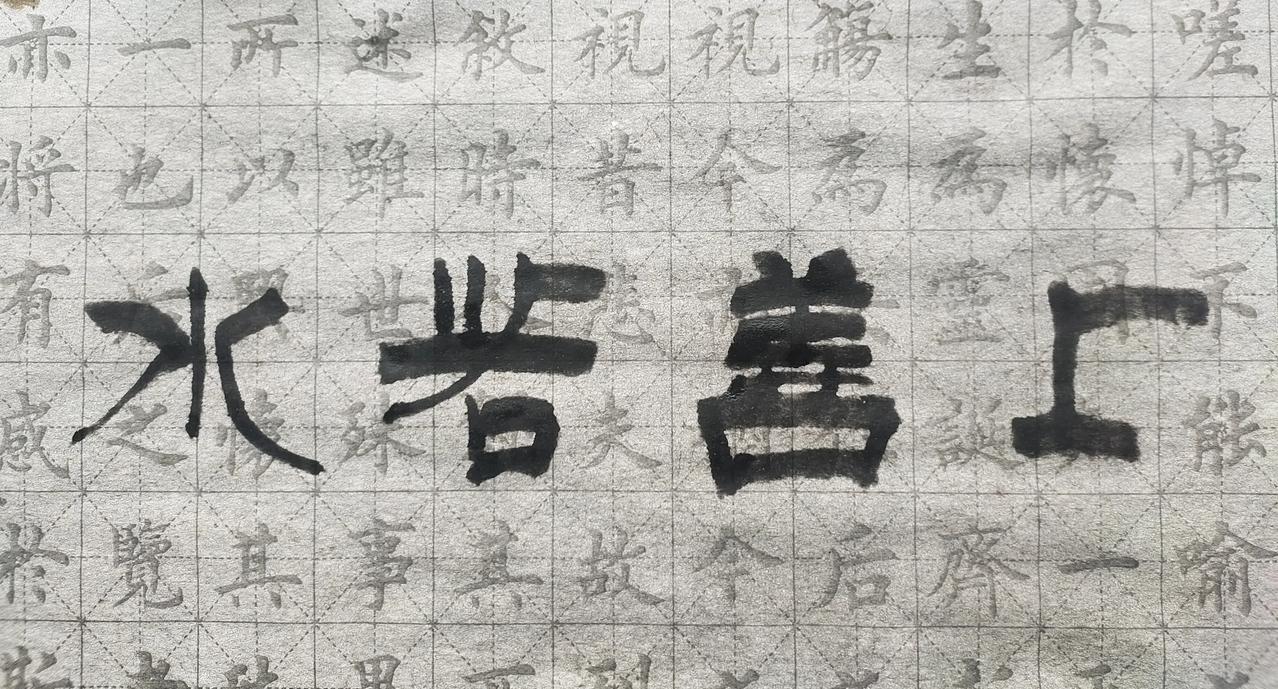 上善若水
嗟悼不能喻
於懷知一
生為虛誕齊
殤為后
視今今
視昔悲夫故列
敘時其
述雖世殊事異
所以懷其
一也之覽者
亦將有感於斯